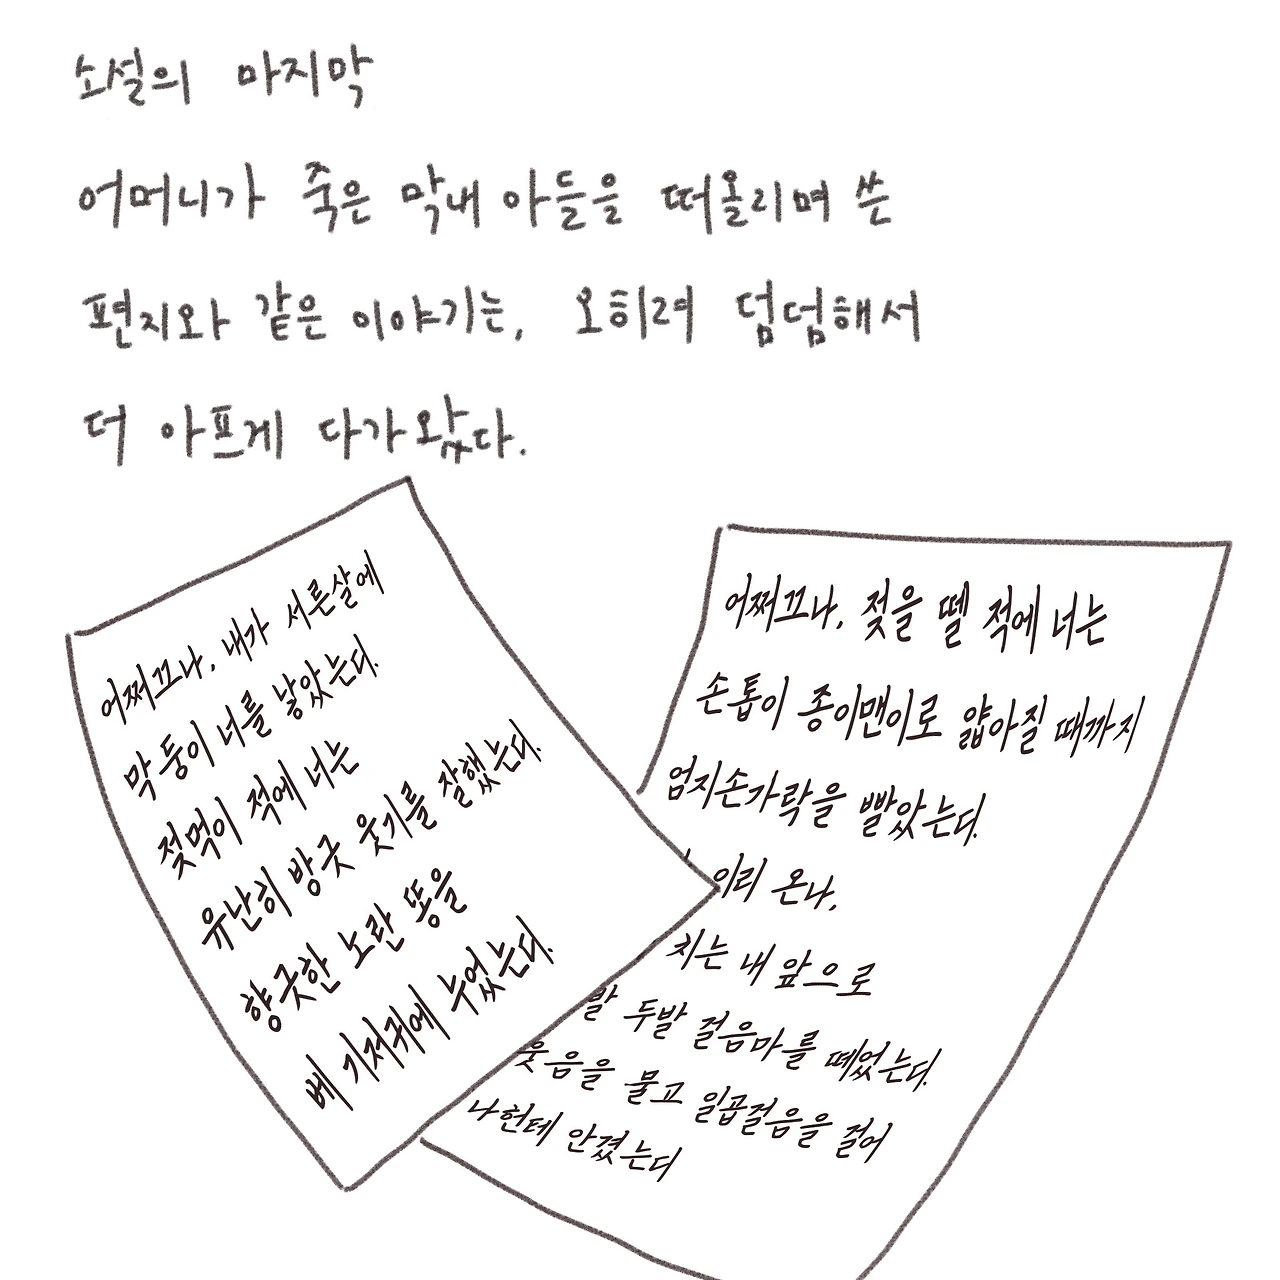 소설의 마지막
어머니가 죽은 막내 아들을 떠올리며 쓴
편지와 같은 이야기는, 오히려 덤덤해서
더 아프게 다가왔다.
어쩌끄나, 내가 서른살에
막둥이 너를 낳았는디.
젖먹이 적에 너는
유난히 방긋 웃기를 잘했는디.
향긋한 노란 똥을
베 기저귀에 누었는디.
어쩌끄나, 젖을 뗄 적에 너는
손톱이 종이맨이로 얇아질 때까지
엄지손가락을 빨았는디.
이리 온나,
치는 내 앞으로
발 두발 걸음마를 떼었는디.
웃음을 물고 일곱걸음을 걸어
나헌테 안겼는디